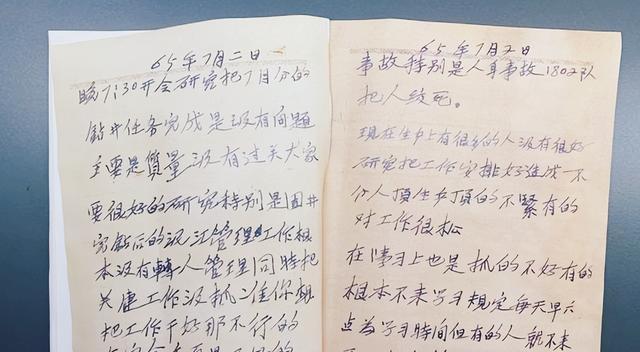 65年7月二日
晚7:30开会研究把7月分的
鉆井任务完成是没有问題
主要是質量没有过关大家
要很好的研究特别是固井
完鉆后的泥江管理工作根
本没有轉人管理同時把
关建工作没抓住你想
把工作干好那不行的
65年7月2日
事故特别是人身事故1802队
把人绞死。
现在生中上有很多的人没有很好
研究把工作安排好造成一不
分人頂生中頂的不緊有的
对工作很松
在学习上也是抓的不好有的
根本不来学习規定每天早六
点為学习時间但有的人就不来